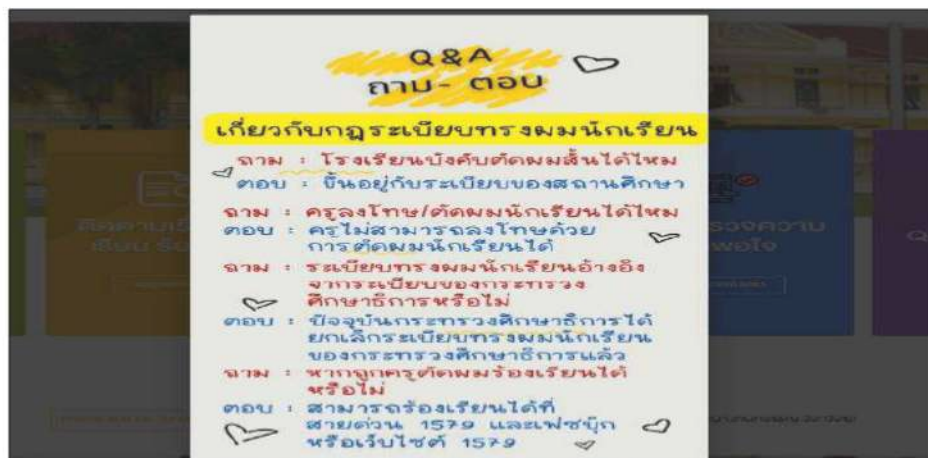 Q&A
ถาม - ตอบ
เกี่ยวกับกฎระเบียบทรงผมนักเรียน
ถาม : โรงเรียนบังคับตัดผมสั้นได้ไหม
ตอบ : ขึ้นอยู่กับระเบียบของสถานศึกษา
ถาม : ครูลงโทษ/ตัดผมนักเรียนได้ไหม
ตอบ : ครูไม่สามารถลงโทษด้วย
การตัดผมนักเรียนได้
ถาม : ระเบียบทรงผมนักเรียนอ้างอิง
จากระเบียบของกระทรวง
ศึกษาธิการหรือไม่
ตอบ : ปัจจุบันกระทรวงศึกษาธิการได้
ยกเลิกระเบียบทรงผมนักเรียน
ของกระทรวงศึกษาธิการแล้ว
ถาม : หากถูกครูตัดผมร้องเรียนได้
หรือไม่
ตอบ : สามารถร้องเรียนได้ที่
สายด่วน 1579 และเฟซบุ๊ก
หรือเว็บไซต์ 1579